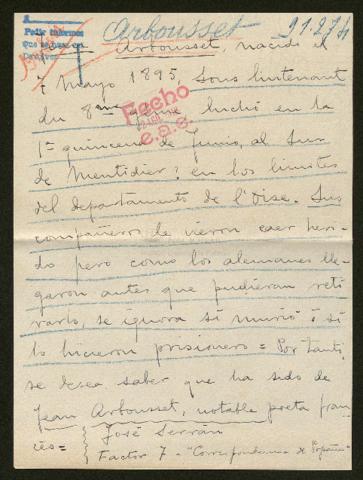 Pedir informes
Arbousset 91.274
Arbousset, nacido el
7 Mayo 1895, Sous lieutenant
du 8me génie luchó en la
Fecho
1ª quincena de Junio, al Sur
de Mentidier? en los limites
del departamento de l'Oise. Sus
compañeros le vieron caer heri-
do pero como los alemanes lle-
garon antes que pudieran reti-
rarlo, se ignora si murió ó si
lo hicieron prisionero = Por tanto
se desea saber que ha sido de
Jean Arbousset, notable poeta fran-
cés =
José Serrán
Factor 7 - "Correspondencia de España"